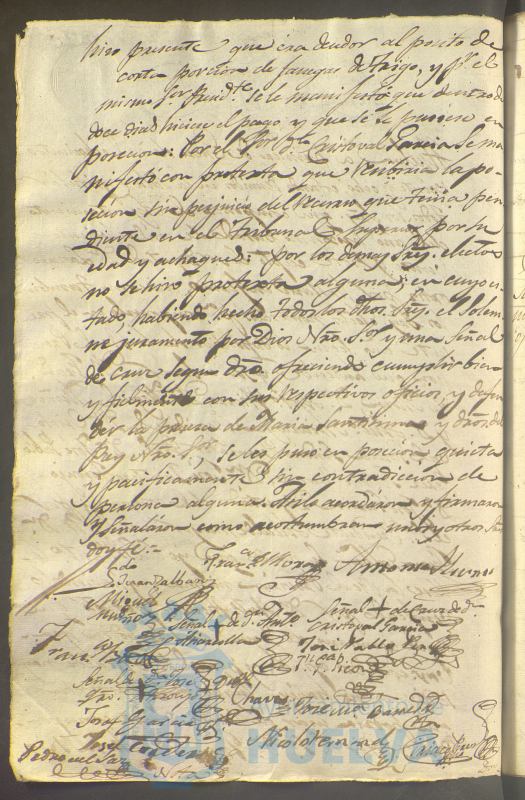 hizo presente que era deudor al posito de
corta porcion de fanegas de trigo, y pr. el
mismo Sor. Presidte. se le manifestó que dentro de
doce dias hiciese el pago y que se le pusiese en
posecion: Por el Sor. Dn. Cristoval Garcia se ma
nifestó con protexta que recibiria la po-
sesion sin perjuicio del recurso que tenia pen
diente en el Tribunal Superior por su
edad y achaques: por los demas Sres. electos
no se hizo protexta alguna: en cuyo es-
tado, habiendo hecho todos los dhos. Sres. el solem
ne juramento por Dios Nro. Sor. y una señal
de cruz segun dro. ofreciendo cumplir bien
y fielmente con sus respectivos oficios, y defen
der la pureza de Maria Santisima y dros. del
Rey Nro. Sor., se les puso en posecion quieta
y pacificamente sin contradiccion de
persona alguna. Asi lo acordaron y firmaron
y señalaron como acostumbran unos y otros
doy fe.=
Juan Dalban Franca. Moro Antonio
Miguel
Muñoz Señal + de Dn. Anto. Señal + de Cruz de Dn.
Cristoval Garcia
José Pablo
Señal de
Chaves
José Garcia
José Nicolo
Pedro del
HUELVA